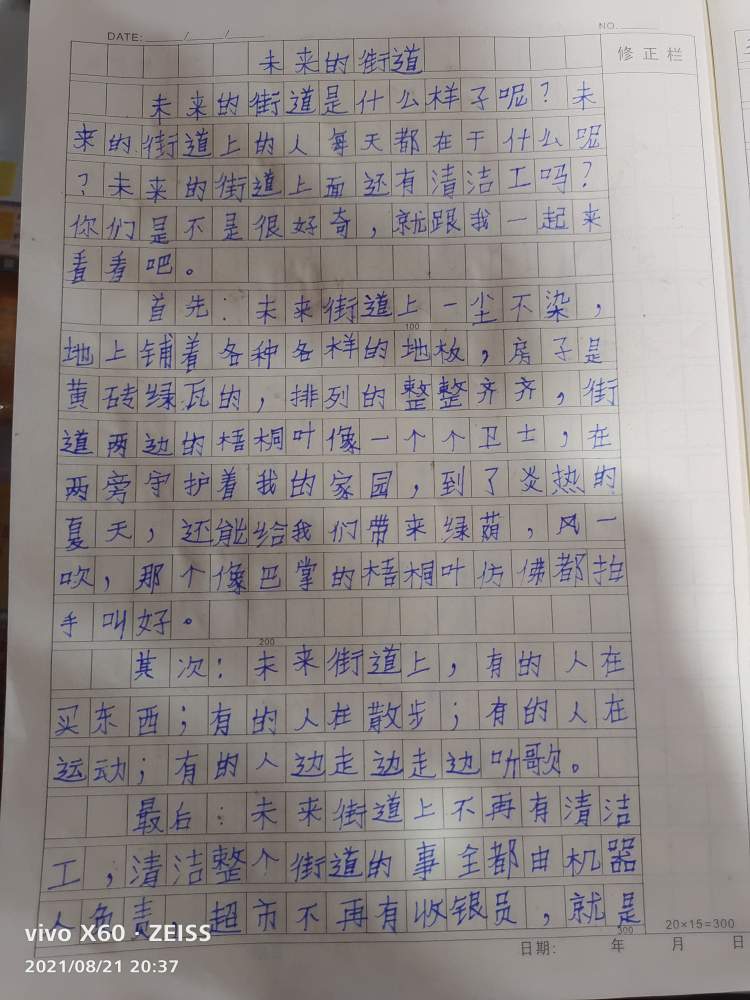 DATE: / /
NO.
修正栏
未来的街道
未来的街道是什么样子呢？未
来的街道上的人每天都在干什么呢
？未来的街道上面还有清洁工吗？
你们是不是很好奇，就跟我一起来
看看吧。
首先：未来街道上一尘不染，
100
地上铺着各种各样的地板，房子是
黄砖绿瓦的，排列的整整齐齐，街
道两边的梧桐叶像一个个卫士，在
两旁守护着我的家园，到了炎热的
夏天，还能给我们带来绿荫，风一
吹，那个像巴掌的梧桐叶仿佛都拍
手叫好。
200
其次：未来街道上，有的人在
买东西；有的人在散步；有的人在
运动；有的人边走边走边听歌。
最后：未来街道上不再有清洁
工，清洁整个街道的事全都由机器
人负责，超市不再有收银员，就是
300
20×15=300
日期： 年 月 日
vivo X60 · ZEISS
2021/08/21 20:37